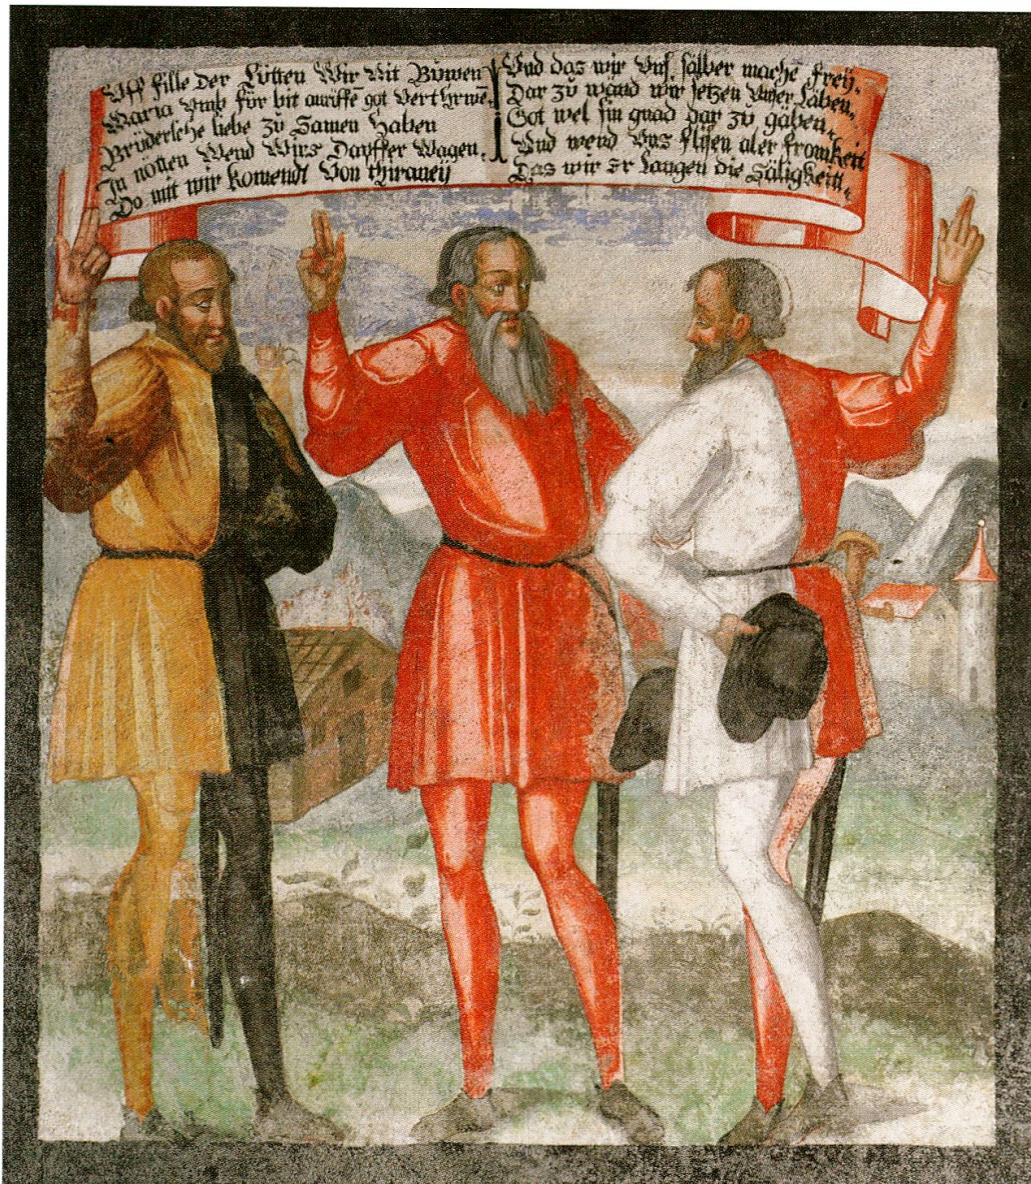 Uff fille Der Lütten Wir Nit Büwen
Maria Vmb Für bit anrüffē got Vert
Brüdersche liebe zü Samen Haben
In nötten Wend Wirs Dapffer Wagen.
Do mit wir komendt Von thiraney
Vnd das wir Vns sälber machē Frey.
Dar zü wand wir setzen Vnser Läben.
Got wel sin gnad dar zü gäben.
Vnd wend Vns flisen aler Fromkeit
Das wir Er langen die Säligkeitt.